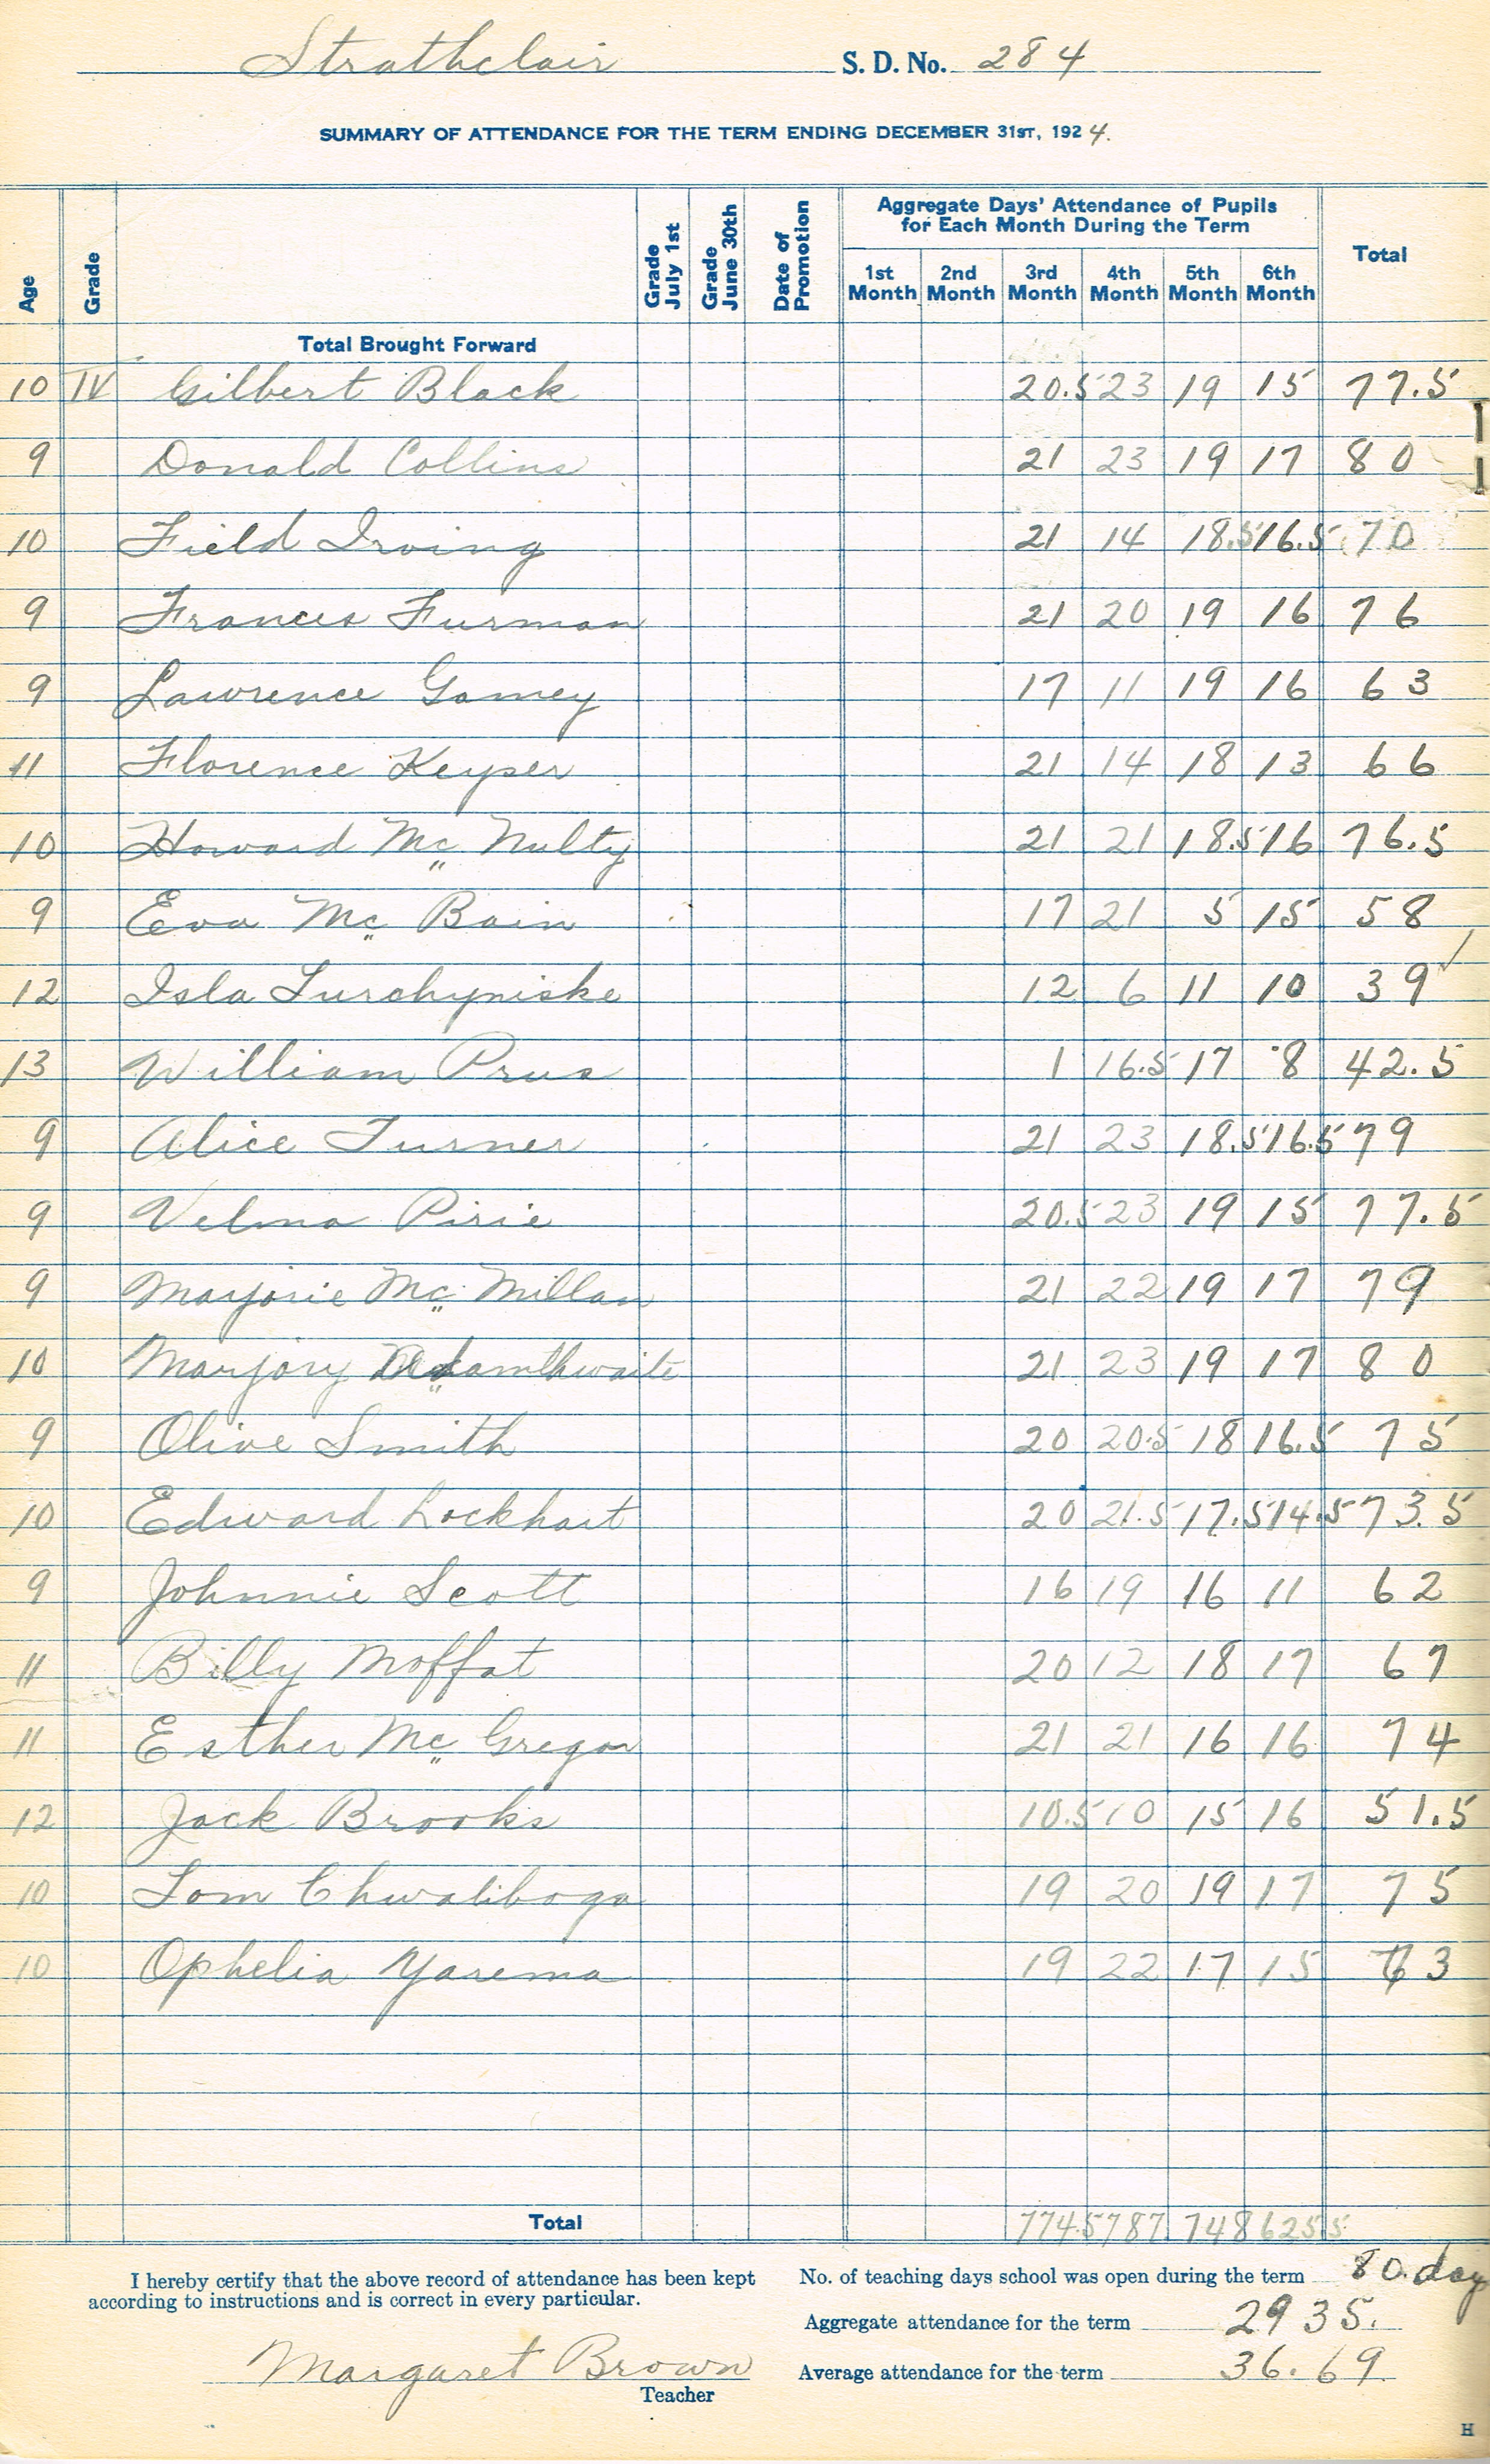 Strathclair S. D. No. 284
SUMMARY OF ATTENDANCE FOR THE TERM ENDING DECEMBER 31ST, 1924.
Age Grade Grade July 1st Grade June 30th Date of Promotion Aggregate Days' Attendance of Pupils for Each Month During the Term Total
1st Month 2nd Month 3rd Month 4th Month 5th Month 6th Month
Total Brought Forward
10 IV Gilbert Black 20.5 23 19 15 77.5
9 Donald Collins 21 23 19 17 80
10 Field Irving 21 14 18.5 16.5 70
9 Frances Furman 21 20 19 16 76
9 Lawrence Gamey 17 11 19 16 63
11 Florence Keyser 21 14 18 13 66
10 Howard Mc Nulty 21 21 18.5 16 76.5
9 Eva Mc Bain 17 21 5 15 58
12 Isla Turchyniske 12 6 11 10 39
13 William Prus 1 16.5 17 8 42.5
9 Alice Turner 21 23 18.5 16.5 79
9 Velma Pirie 20.5 23 19 15 77.5
9 Marjorie Mc Millan 21 22 19 17 79
10 Marjory 21 23 19 17 80
9 Olive Smith 20 20.5 18 16.5 75
10 Edward Lockhart 20 21.5 17.5 14.5 73.5
9 Johnnie Scott 16 19 16 11 62
11 Billy Moffat 20 12 18 17 67
11 Esther Mc Gregor 21 21 16 16 74
12 Jack Brooks 10.5 10 15 16 51.5
10 Tom Chwaliboga 19 20 19 17 75
10 Ophelia Yarema 19 22 17 15 73
Total 774.5 787. 748 625.5
I hereby certify that the above record of attendance has been kept
according to instructions and is correct in every particular.
Margaret Brown
Teacher
No. of teaching days school was open during the term 80. day
Aggregate attendance for the term 2935.
Average attendance for the term 36.69
H